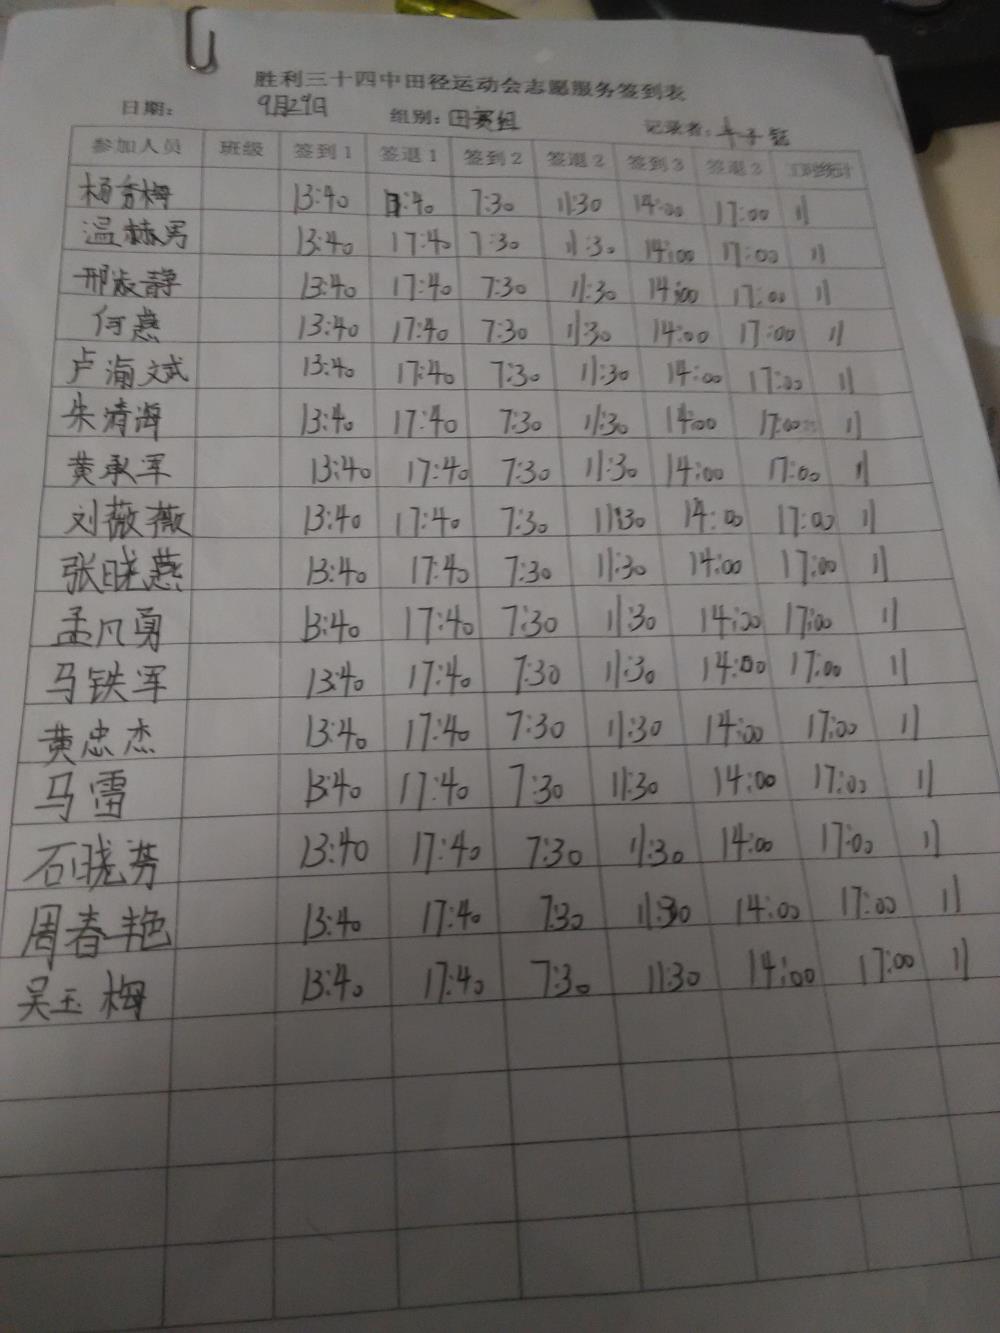 胜利三十四中田径运动会志愿服务签到表
日期: 9月29日 组别: 田赛组 记录者:
参加人员 班级 签到1 签退1 签到2 签退2 签到3 签退3 工时统计
杨秀梅 13:40 17:40 7:30 11:30 14:00 17:00 11
温赫男 13:40 17:40 7:30 11:30 14:00 17:00 11
邢淑静 13:40 17:40 7:30 11:30 14:00 17:00 11
何燕 13:40 17:40 7:30 11:30 14:00 17:00 11
卢瀹斌 13:40 17:40 7:30 11:30 14:00 17:00 11
朱清海 13:40 17:40 7:30 11:30 14:00 17:00 11
黄承军 13:40 17:40 7:30 11:30 14:00 17:00 11
刘薇薇 13:40 17:40 7:30 11:30 14:00 17:00 11
张晓燕 13:40 17:40 7:30 11:30 14:00 17:00 11
孟凡勇 13:40 17:40 7:30 11:30 14:00 17:00 11
马铁军 13:40 17:40 7:30 11:30 14:00 17:00 11
黄忠杰 13:40 17:40 7:30 11:30 14:00 17:00 11
马雷 13:40 17:40 7:30 11:30 14:00 17:00 11
石晓芳 13:40 17:40 7:30 11:30 14:00 17:00 11
周春艳 13:40 17:40 7:30 11:30 14:00 17:00 11
吴玉梅 13:40 17:40 7:30 11:30 14:00 17:00 11